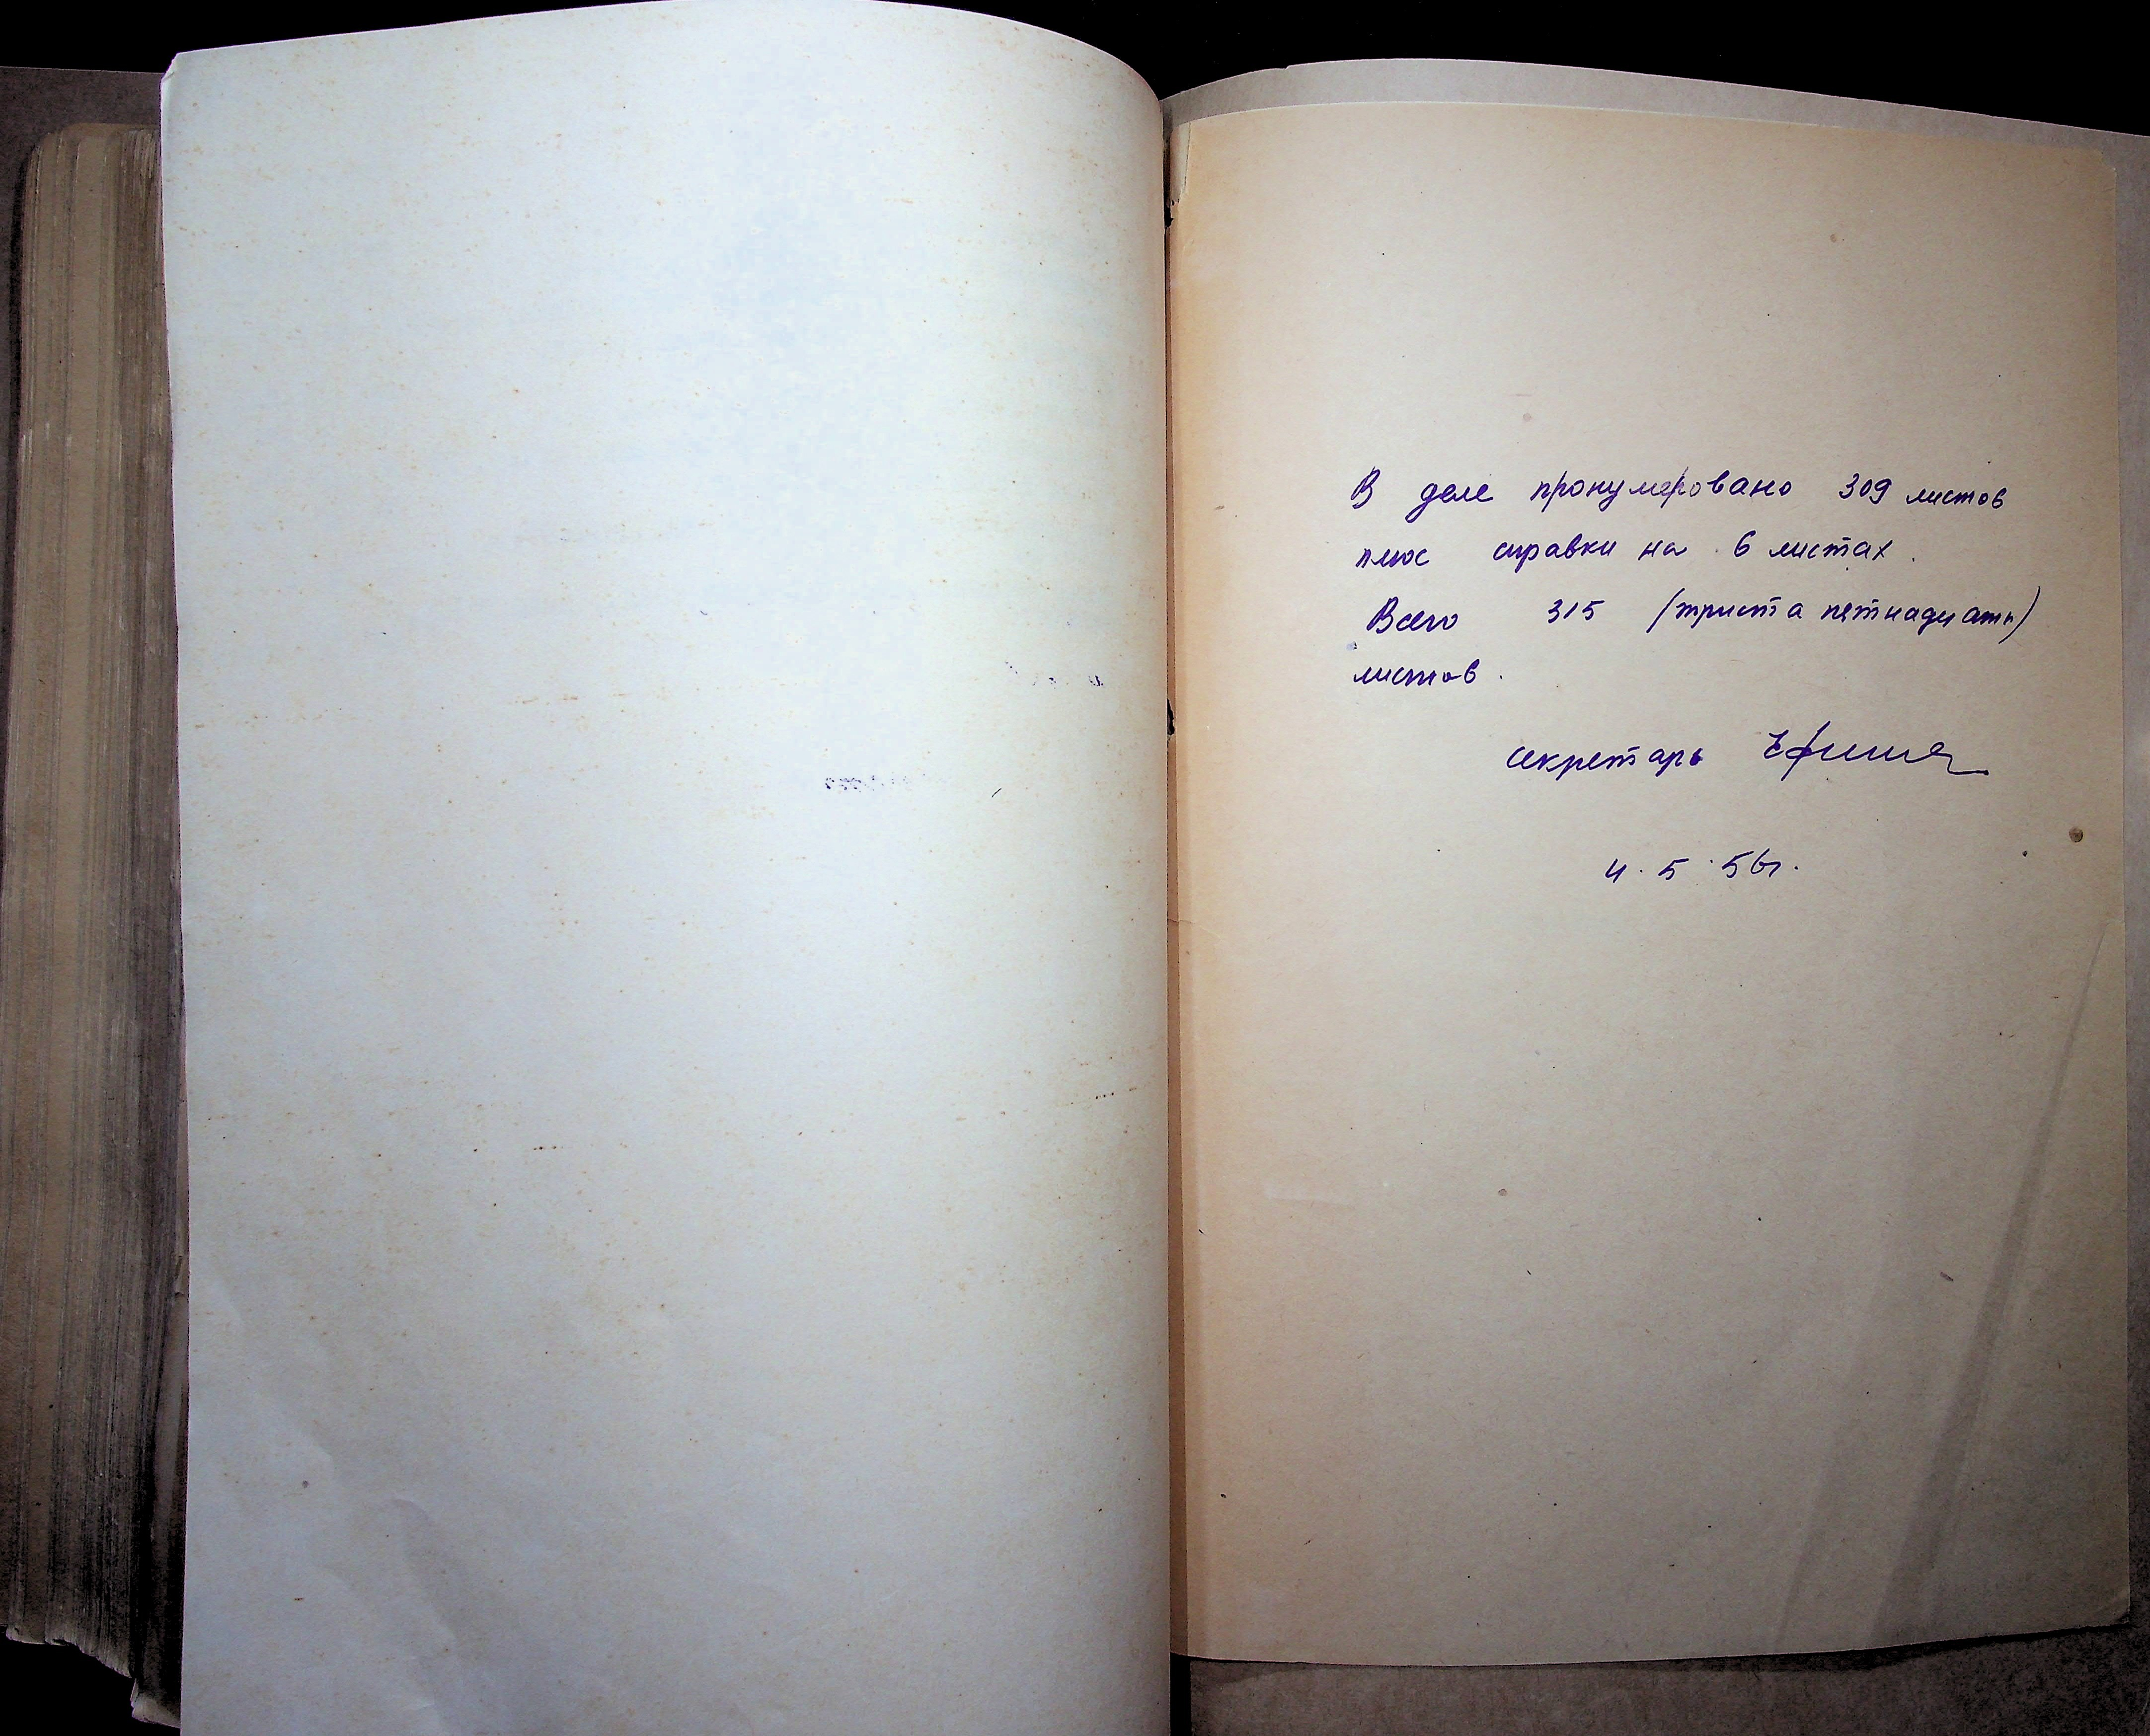 В деле пронумеровано 309 листов
плюс справки на 6 листах.
Всего 315 (триста пятнадцать)
листов.
секретарь
4.5.56г.